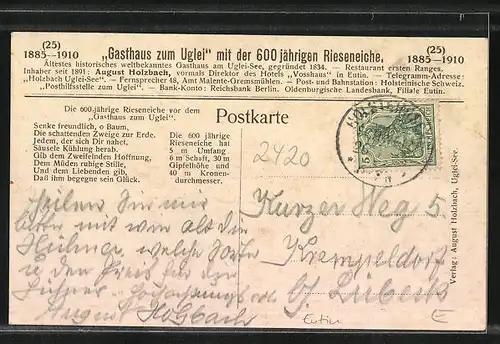 (25)
1885—1910
„Gasthaus zum Uglei" mit der 600 jährigen Rieseneiche.
(25)
1885—1910
Ältestes historisches weltbekanntes Gasthaus am Uglei-See, gegründet 1834. — Restaurant ersten Ranges.
Inhaber seit 1891: August Holzbach, vormals Direktor des Hotels „Vosshaus" in Eutin. — Telegramm-Adresse:
„Holzbach Uglei-See". — Fernsprecher 48, Amt Malente-Gremsmühlen. — Post- und Bahnstation: Holsteinische Schweiz.
„Posthilfsstelle zum Uglei". — Bank-Konto: Reichsbank Berlin. Oldenburgische Landesbank, Filiale Eutin.
Die 600 jährige Rieseneiche vor dem
„Gasthaus zum Uglei".
Senke freundlich, o Baum,
Die schattenden Zweige zur Erde.
Jedem, der sich Dir nahet,
Säusele Kühlung herab.
Gib dem Zweifelnden Hoffnung,
Dem Müden ruhige Stille,
Und dem Liebenden gib,
Daß ihm begegne sein Glück.
Die 600 jährige
Rieseneiche hat
5 m Umfang
6 m Schaft, 30 m
Gipfelhöhe und
40 m Kronen-
durchmesser.
Postkarte
2420
Teilen Sie mir
bitte mit wie alt die
Hühner, welche Sorte
u den Preis für die
Hühner
August Holzbach
Kurzer Weg 5
Krempelsdorf
b/ Lübeck
Eutin
E
Verlag: August Holzbach, Uglei-See.